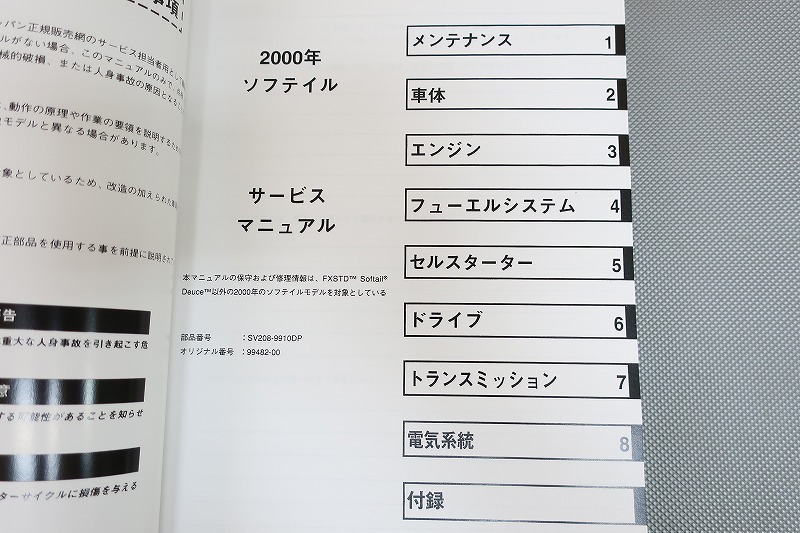 事項
パン正規販売網のサービス担当者用として
ルがない場合、このマニュアルのみで、
械的破損、または人身事故の原因となる
、動作の原理や作業の要領を説明するため
モデルと異なる場合があります。
象としているため、改造の加えられた
正部品を使用する事を前提に説明され
告
重大な人身事故を引き起こす危
意
する可能性があることを知らせ
ターサイクルに損傷を与える
2000年
ソフテイル
サービス
マニュアル
本マニュアルの保守および修理情報は、FXSTD™ Softail®
Deuce™以外の2000年のソフテイルモデルを対象としている
部品番号 ：SV208-9910DP
オリジナル番号 ：99482-00
メンテナンス 1
車体 2
エンジン 3
フューエルシステム 4
セルスターター 5
ドライブ 6
トランスミッション 7
電気系統 8
付録